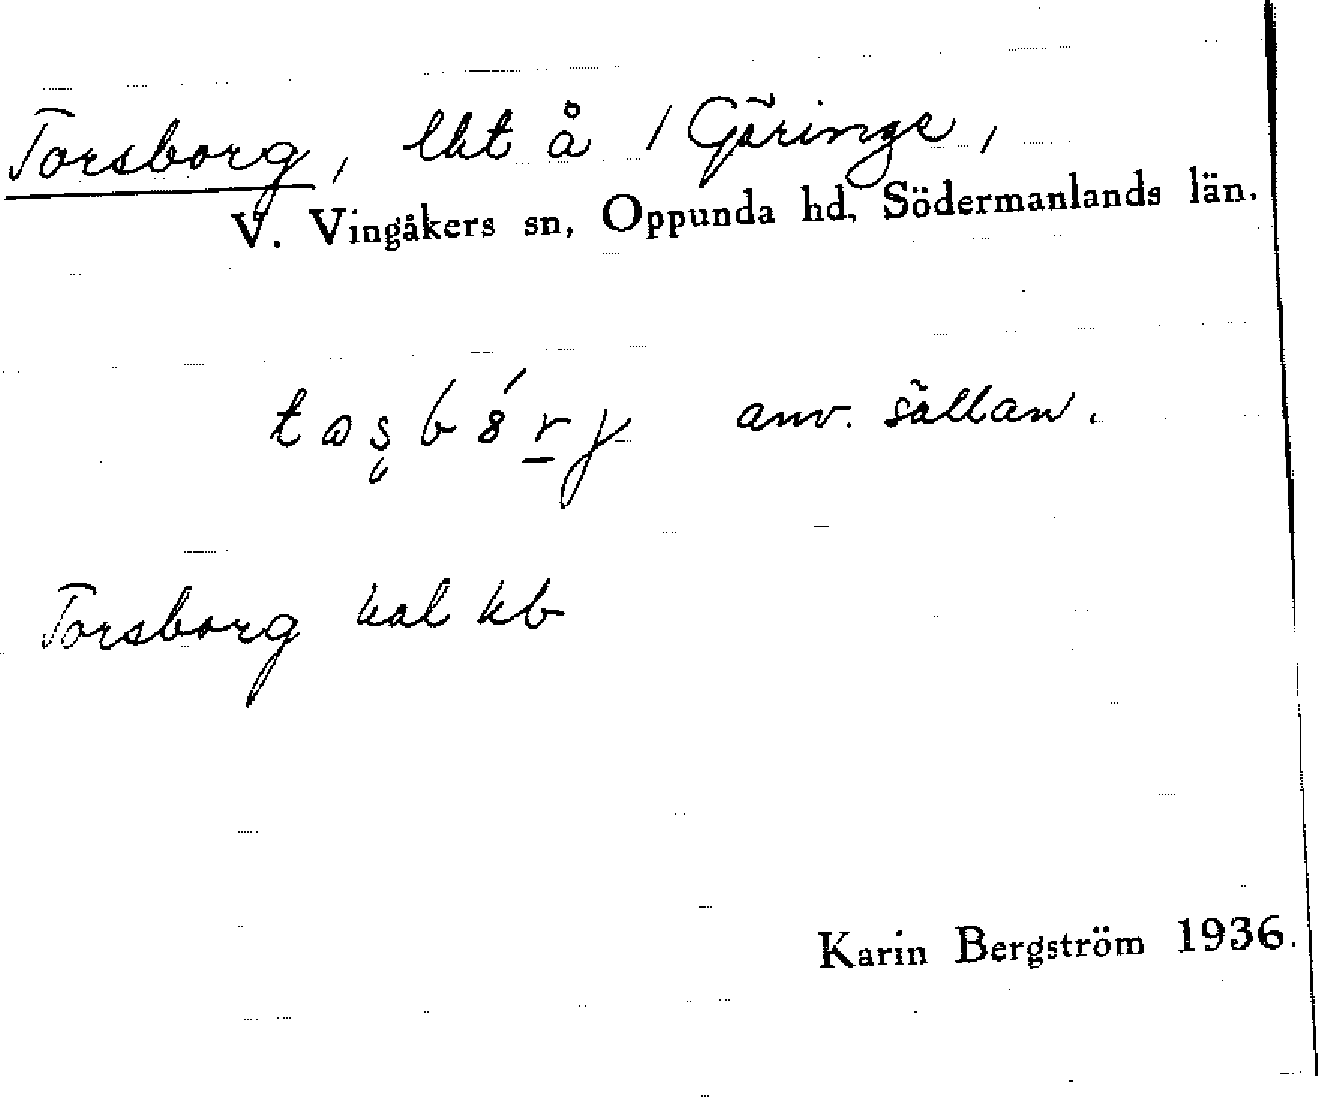 Torsborg, lht å / Göringe,
V. Vingåkers sn, Oppunda hd, Södermanlands län.
anv. sällan.
Torsborg kal kb
Karin Bergström 1936.